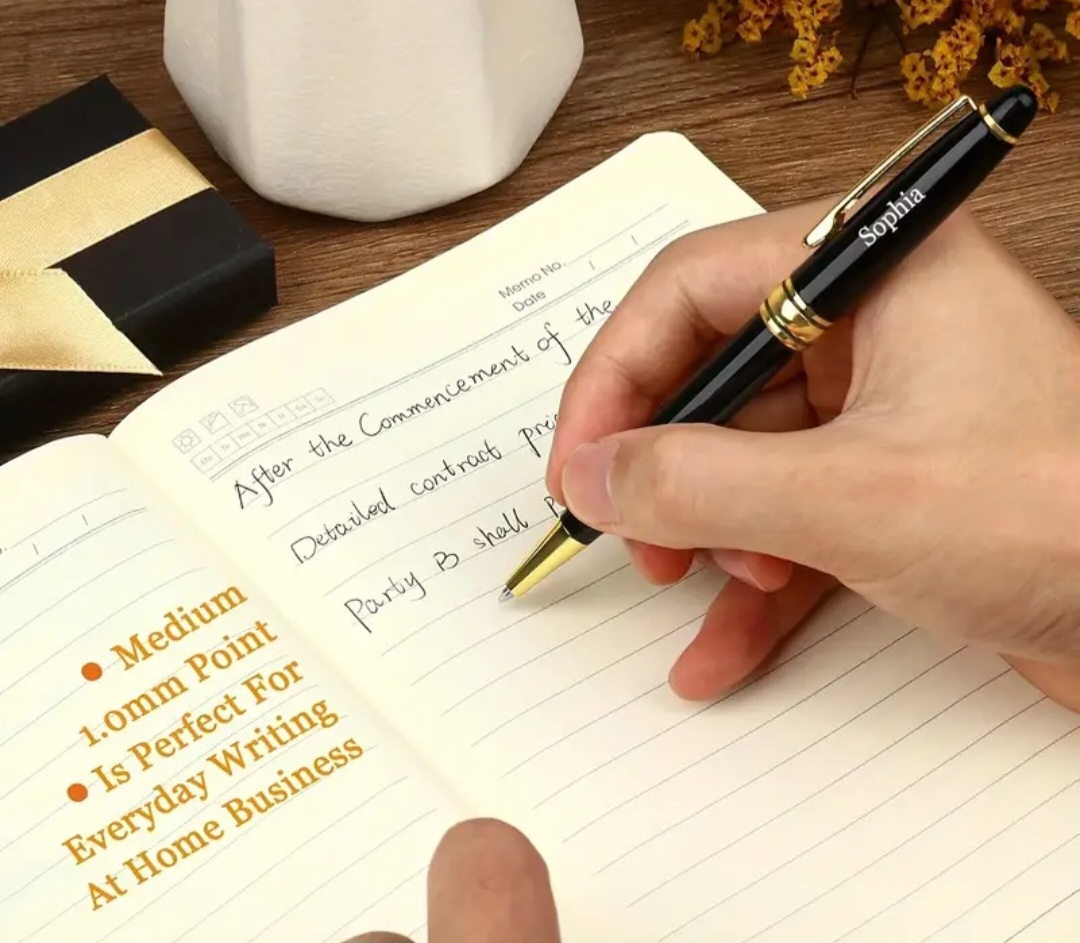 Sophia
Memo No.
Date
After the Commencement of the
Detailed contract
Party B shall
• Medium
1.0mm Point
• Is Perfect For
Everyday Writing
At Home Business